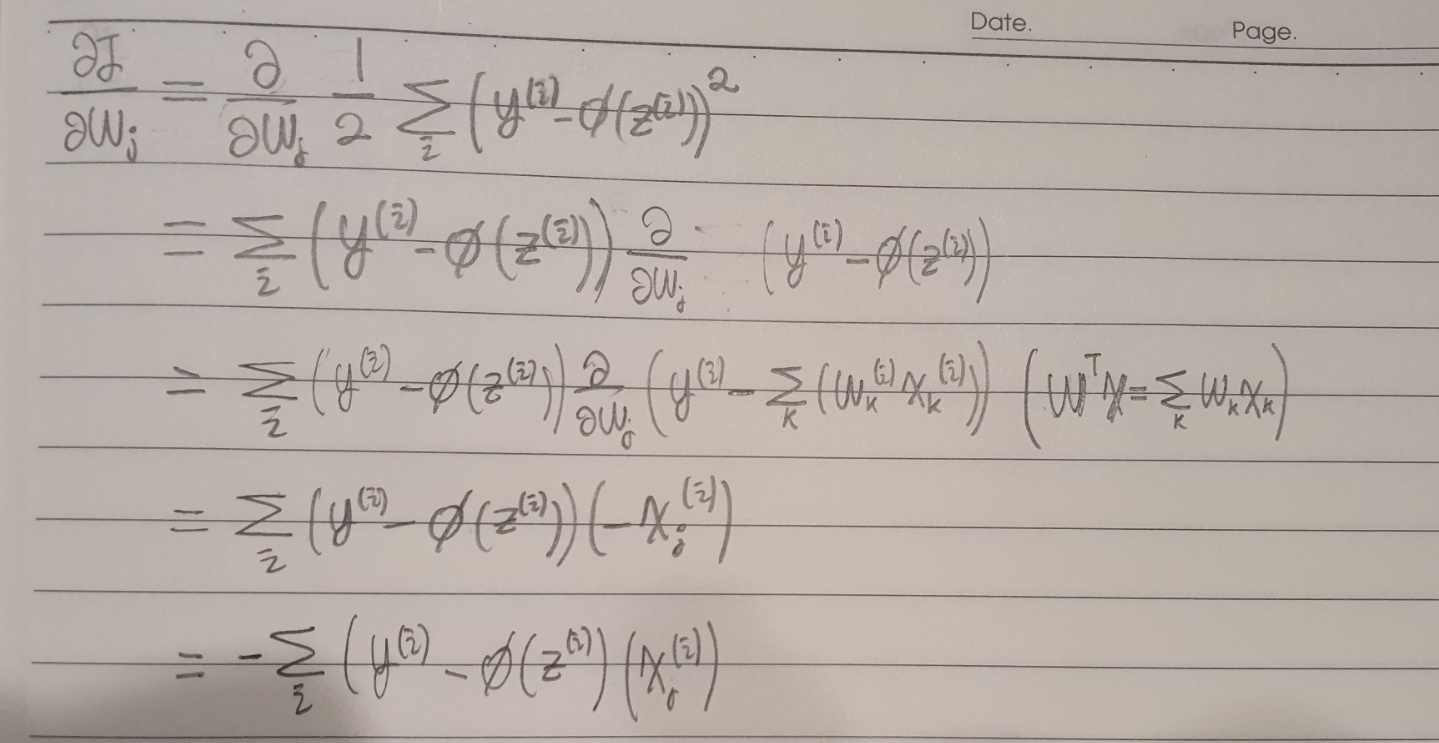 Date. Page.
∂J/∂w_j = ∂/∂w_j 1/2 Σ_i (y^(i) - ϕ(z^(i)))^2
= Σ_i (y^(i) - ϕ(z^(i))) ∂/∂w_j (y^(i) - ϕ(z^(i)))
= Σ_i (y^(i) - ϕ(z^(i))) ∂/∂w_j (y^(i) - Σ_k (w_k^(i) x_k^(i))) (w^T x = Σ_k w_k x_k)
= Σ_i (y^(i) - ϕ(z^(i))) (-x_j^(i))
= -Σ_i (y^(i) - ϕ(z^(i)) (x_j^(i))